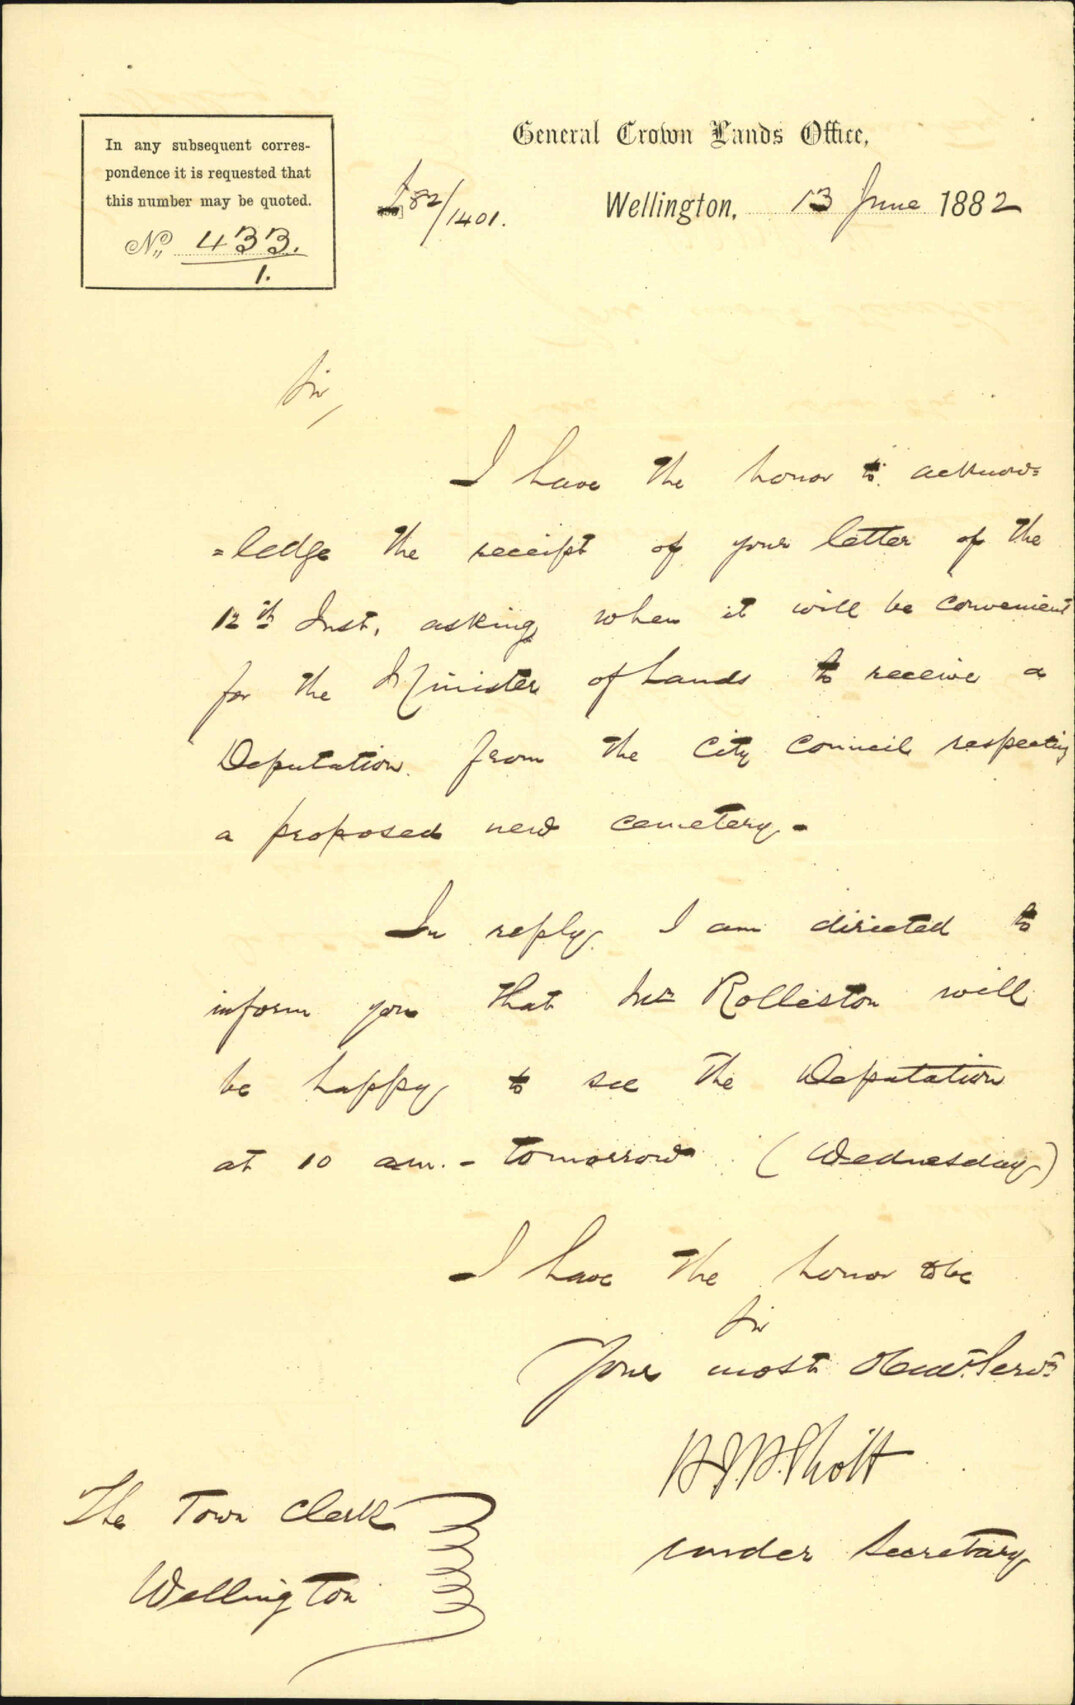 In any subsequent corres-
pondence it is requested that
this number may be quoted.
No. 433.
1.
General Crown Lands Office,
82/1401.
Wellington, 13 June 1882
Sir,
I have the honor to acknow=
=ledge the receipt of your letter of the
12th Inst, asking when it will be convenient
for the Minister of Lands to receive a
Deputation from the City Council respecting
a proposed new cemetery -
In reply I am directed to
inform you that Mr Rolleston will
be happy to see the Deputation
at 10 am. - tomorrow (Wednesday)
I have the honor to be
Sir
Your most Obedt. Servt.
under Secretary
The Town Clerk
Wellington